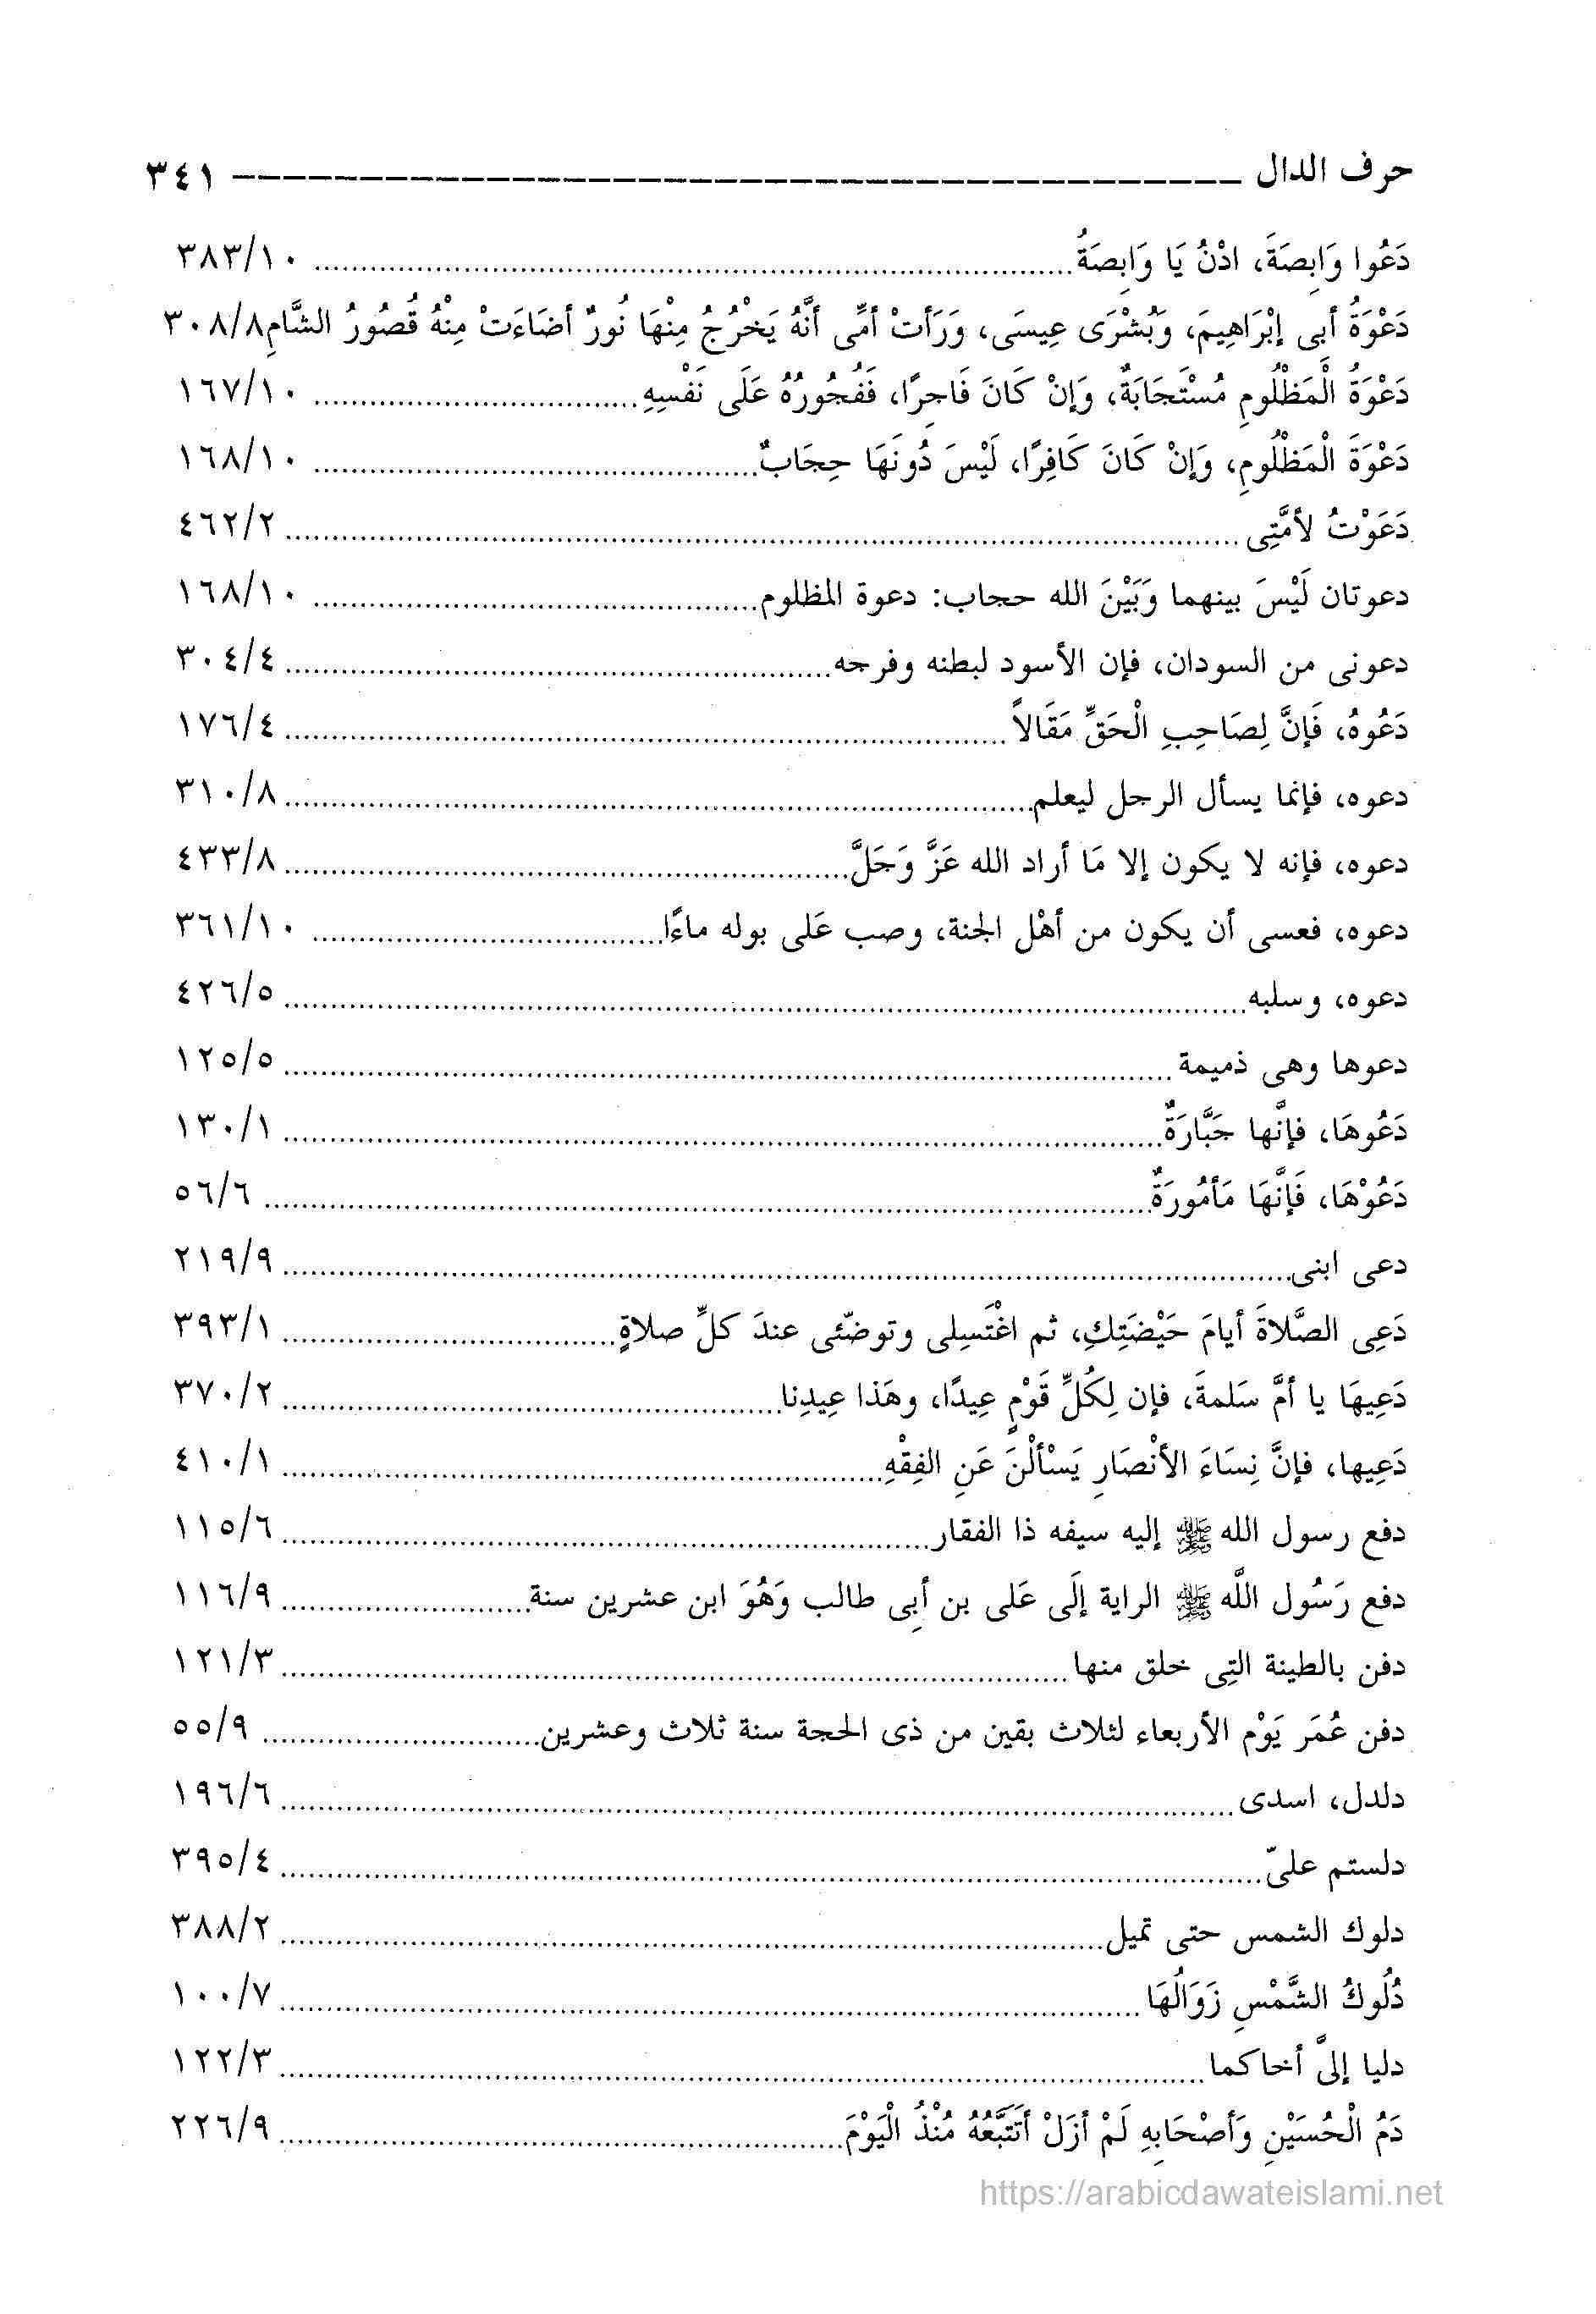 حرف الدال ــــــــــــــــــــــــــــــــــــــــ ٣٤١
دَعُوا وَابِصَةَ، ادْنُ يَا وَابِصَةُ ........ ٣٨٣/١٠
دَعْوَةُ أبى إبْرَاهِيمَ، وَبُشْرَى عِيسَى، وَرَأتْ أمِّى أنَّهُ يَخْرُجُ مِنْهَا نُورٌ أضَاءَتْ مِنْهُ قُصُورُ الشَّامِ ٣٠٨/٨
دَعْوَةُ الْمَظْلُومِ مُسْتَجَابَةٌ، وَإنْ كَانَ فَاجِرًا، فَفُجُورُهُ عَلَى نَفْسِهِ ........ ١٦٧/١٠
دَعْوَةَ الْمَظْلُومِ، وَإنْ كَانَ كَافِرًا، لَيْسَ دُونَهَا حِجَابٌ ........ ١٦٨/١٠
دَعَوْتُ لأمَّتِى ........ ٤٦٢/٢
دعوتان لَيْسَ بينهما وَبَيْنَ الله حجاب: دعوة المظلوم ........ ١٦٨/١٠
دعونى من السودان، فإن الأسود لبطنه وفرجه ........ ٣٠٤/٤
دَعُوهُ، فَإنَّ لِصَاحِبِ الْحَقِّ مَقَالاً ........ ١٧٦/٤
دعوه، فإنما يسأل الرجل ليعلم ........ ٣١٠/٨
دعوه، فإنه لا يكون إلا مَا أراد الله عَزَّ وَجَلَّ ........ ٤٣٣/٨
دعوه، فعسى أن يكون من أهْل الجنة، وصب عَلى بوله ماءًا ........ ٣٦١/١٠
دعوه، وسلبه ........ ٤٢٦/٥
دعوها وهى ذميمة ........ ١٢٥/٥
دَعُوهَا، فإنَّها جَبَّارَةٌ ........ ١٣٠/١
دَعُوْهَا، فَإنَّهَا مَأمُورَةٌ ........ ٥٦/٦
دعى ابنى ........ ٢١٩/٩
دَعِى الصَّلاةَ أيامَ حَيْضَتِكِ، ثم اغْتَسِلى وتوضّئى عندَ كلِّ صلاةٍ ........ ٣٩٣/١
دَعِيهَا يا أمَّ سَلمةَ، فإن لِكُلِّ قَوْمٍ عِيدًا، وهَذا عِيدِنا ........ ٣٧٠/٢
دَعِيها، فإنَّ نِسَاءَ الأنْصَارِ يَسْألْنَ عَنِ الفِقْهِ ........ ٤١٠/١
دفع رسول الله ﷺ إليه سيفه ذا الفقار ........ ١١٥/٦
دفع رَسُول اللَّه ﷺ الراية إلَى عَلى بن أبِى طالب وَهُوَ ابن عشرين سنة ........ ١١٦/٩
دفن بالطينة التِى خلق منها ........ ١٢١/٣
دفن عُمَر يَوْم الأربعاء لثلاث بقين من ذى الحجة سنة ثلاث وعشرين ........ ٥٥/٩
دلدل، اسدى ........ ١٩٦/٦
دلستم علىّ ........ ٣٩٥/٤
دلوك الشمس حتى تميل ........ ٣٨٨/٢
دُلُوكُ الشَّمْسِ زَوَالُهَا ........ ١٠٠/٧
دليا إلىَّ أخاكما ........ ١٢٢/٣
دَمُ الْحُسَيْنِ وَأصْحَابِهِ لَمْ أزَلْ أتَتَبَّعُهُ مُنْذُ الْيَوْمَ ........ ٢٢٦/٩
https://arabicdawateislami.net